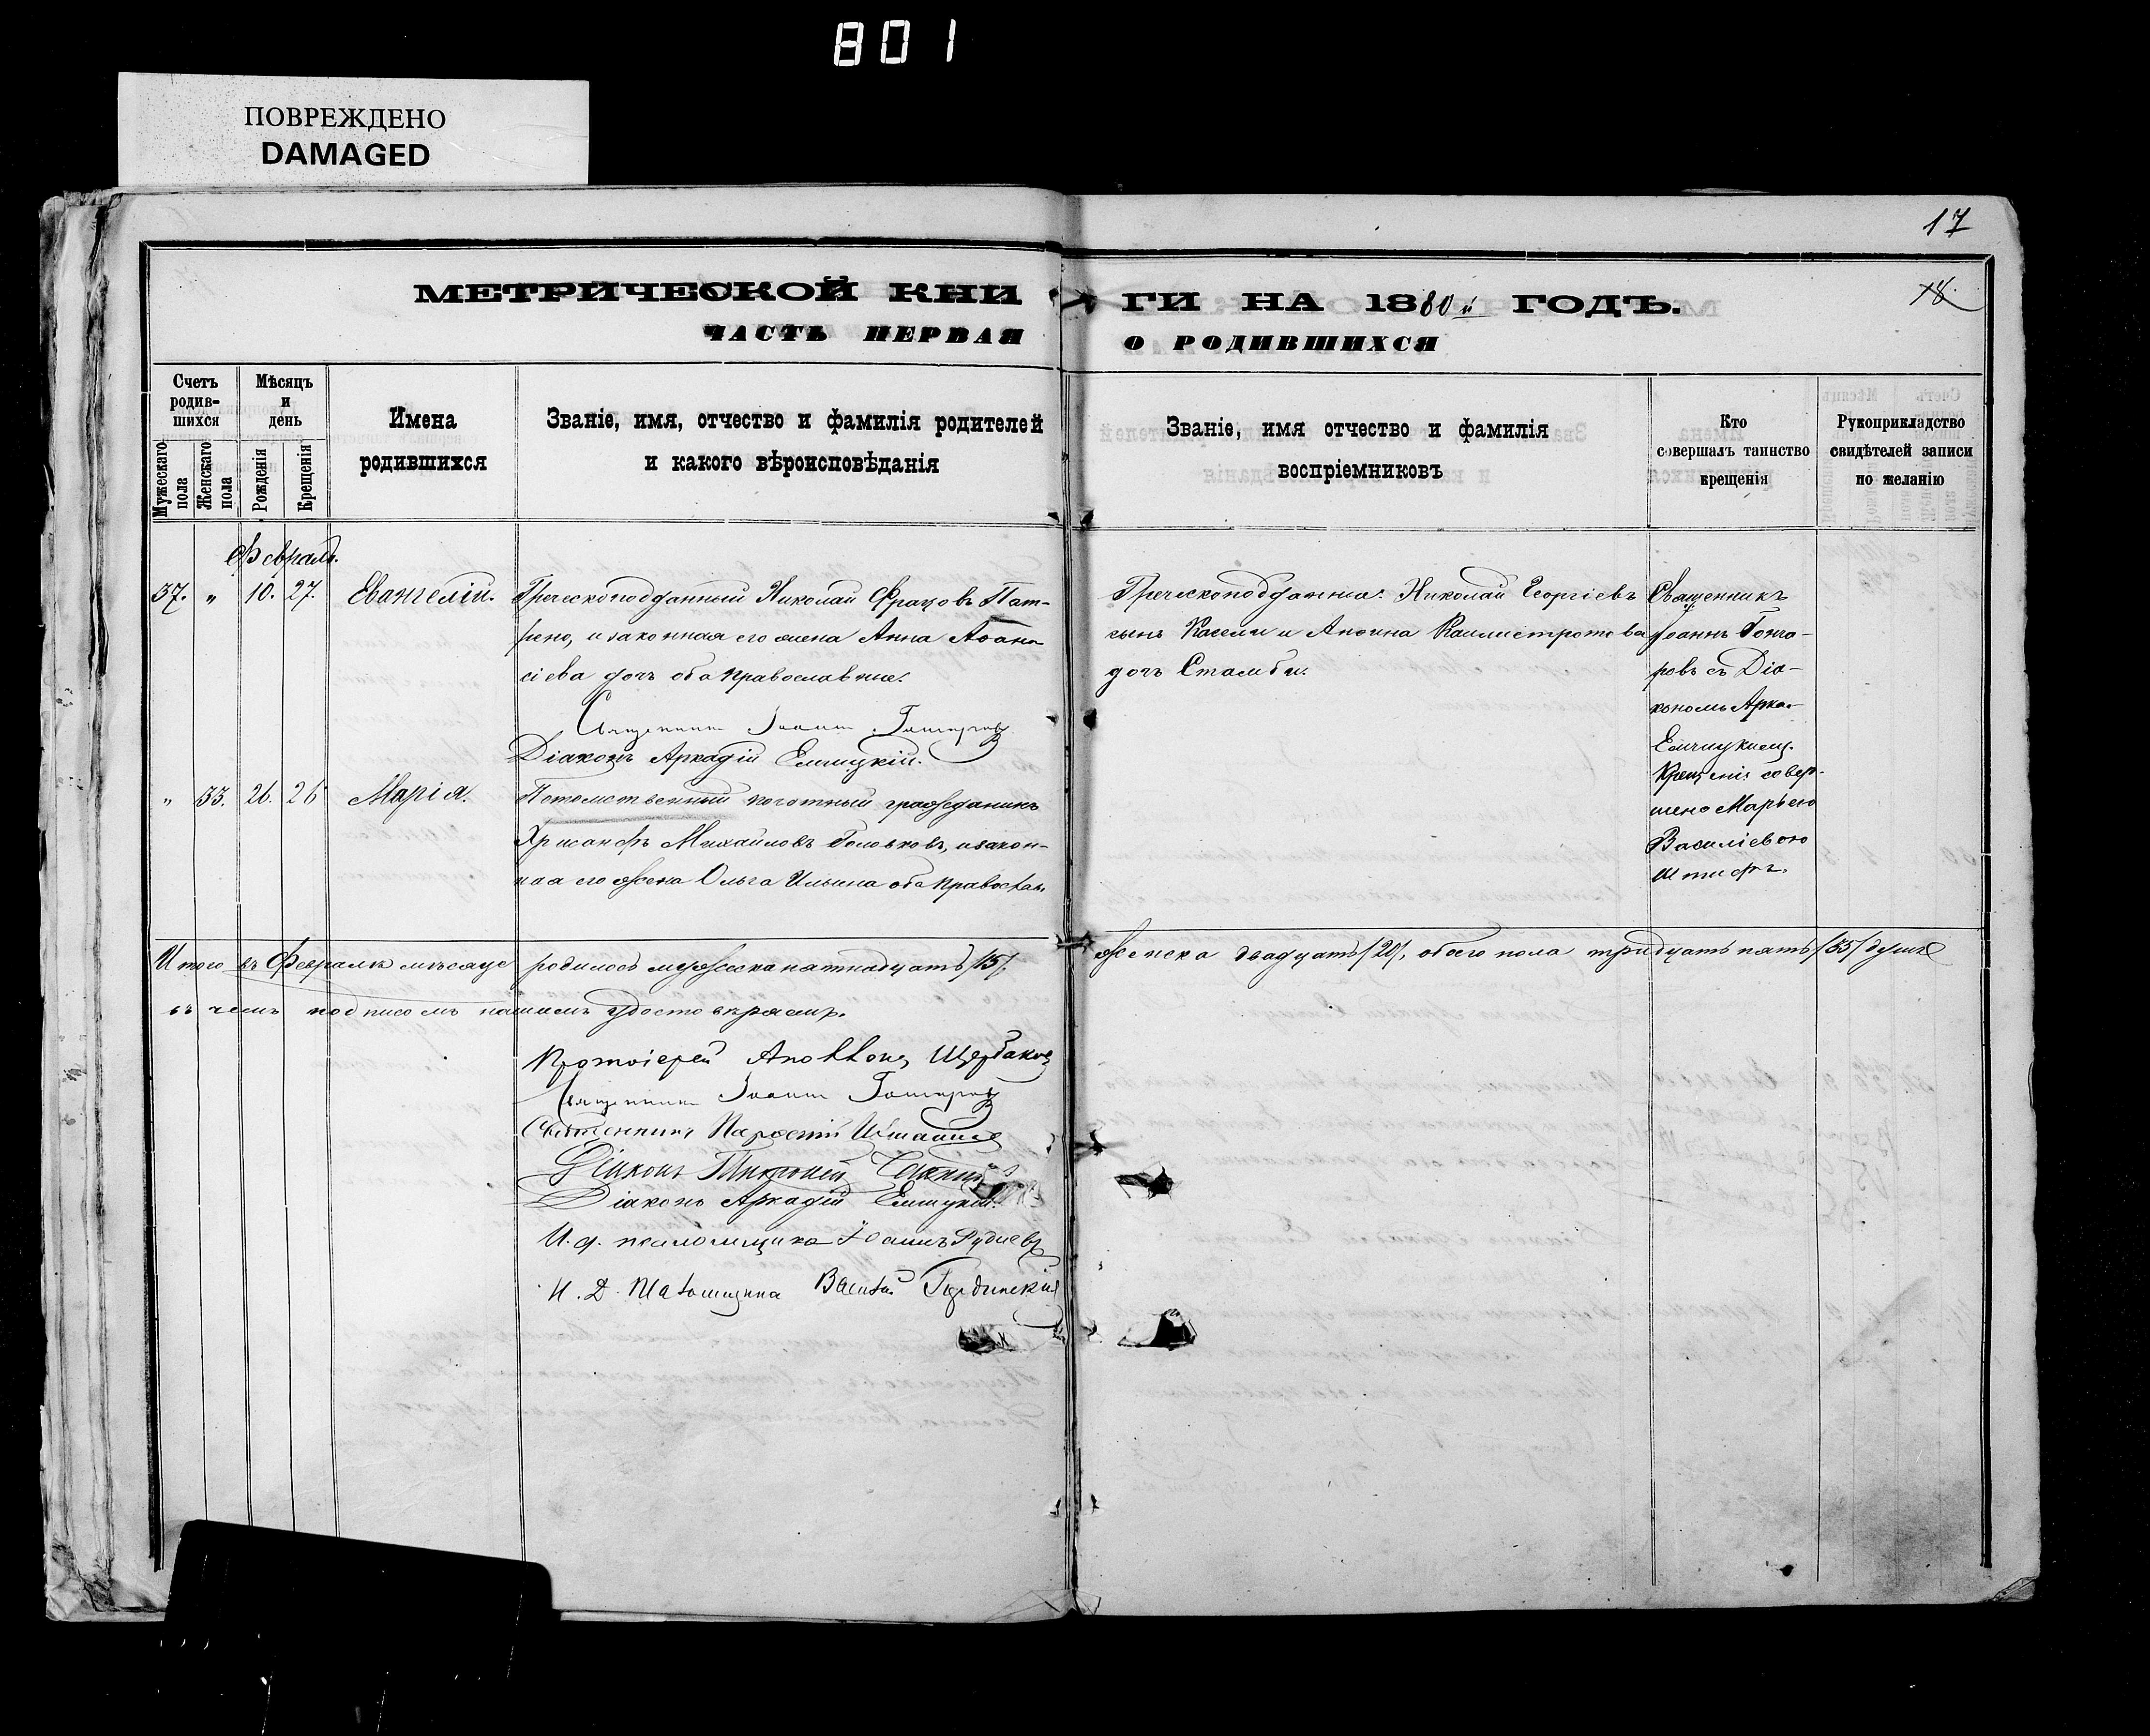 801
ПОВРЕЖДЕНО
DAMAGED
17
18
МЕТРИЧЕСКОЙ КНИ ГИ НА 1880й ГОДЪ.
ЧАСТЬ ПЕРВАЯ О РОДИВШИХСЯ
Счетъ родив- шихся
Мужескаго пола
Женскаго пола
Мѣсяцъ и день
Рожденія
Крещенія
Имена родившихся
Званіе, имя, отчество и фамилія родителей
и какого вѣроисповѣданія
Званіе, имя отчество и фамилія
воспріемниковъ
Кто
совершалъ таинство
крещенія
Рукоприкладство
свидѣтелей записи
по желанію
Февраль.
37. „ 10. 27. Евангелій.
Греческоподданный Николай
и законная его жена Анна Аѳана-
сіева дочь оба православные.
Священникъ Іоаннъ Гончаровъ
Діаконъ Аркадій
Греческоподданные: Николай Георгіевъ
сынъ и
дочь
Священникъ
Іоаннъ Гонча-
ровъ съ Діа-
кономъ Арка.
„ 33. 26. 26 Марія.
Потомственный почетный гражданинъ
Хрисанфъ Михайловъ и закон-
ная его жена Ольга Ильина оба Православн
Крещеніе совер-
шено Марьею
Василіевою
Итого въ Февралѣ мѣсяцѣ родилось мужеска пятнадцать /15/,
женска двадцать /20/, обоего пола тридцать пять /35/ душъ
въ чемъ подписомъ нашимъ удостовѣряемъ.
Протоіерей Аполлонъ Щербаковъ
Священникъ Іоаннъ Гончаровъ
Священникъ
Діаконъ
Діаконъ Аркадій
И. д. псаломщика Іоаннъ
И. Д. Псаломщика Василій